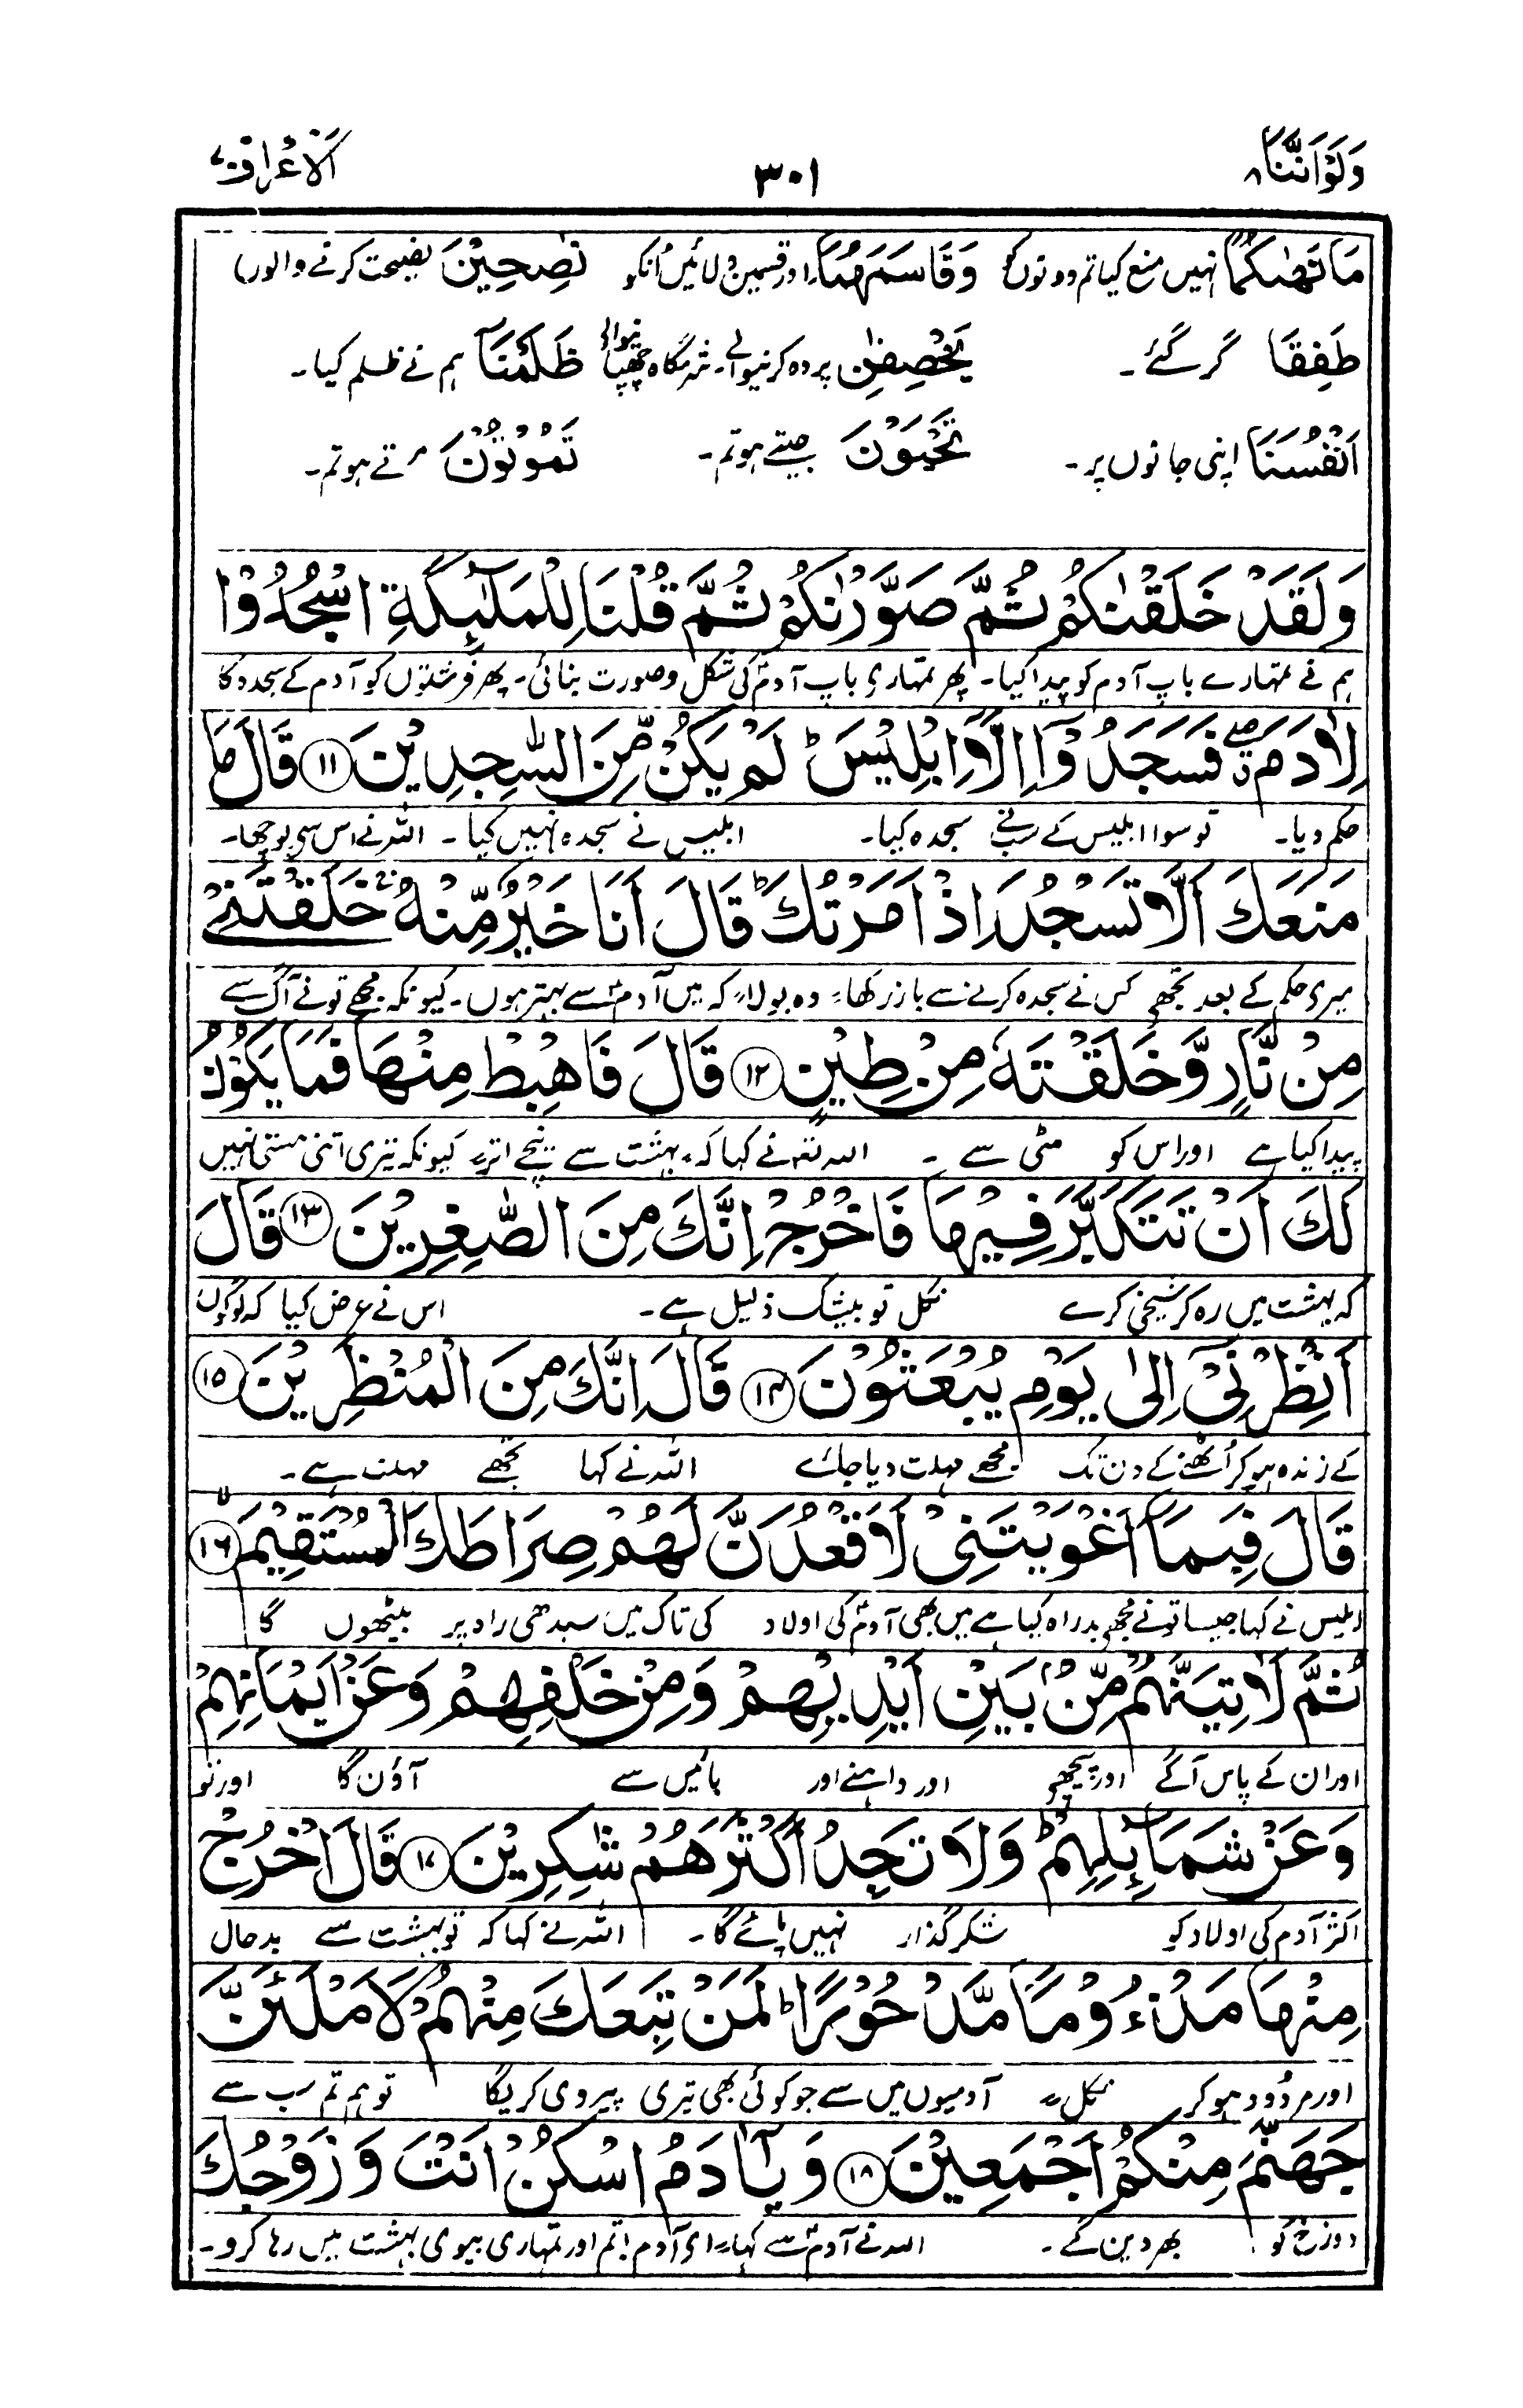 وَلَوْاَنَّنَا ۸
۳۰۱
اَلْاَعْرَاف ۷
مَا نَهٰىكُمَا نہیں منع کیا تم دونوں کو وَقَاسَمَهُمَا اور قسمیں دلائیں انکو نٰصِحِيْنَ نصیحت کرنے والوں)
طَفِقَا گر گئے۔ يَخْصِفٰنِ پردہ کرنیوالے۔ شرمگاہ چھپانیوالے ظَلَمْنَا ہم نے ظلم کیا۔
اَنْفُسَنَا اپنی جانوں پر۔ تَحْيَوْنَ جیتے ہو تم۔ تَمُوْتُوْنَ مرتے ہو تم۔
وَلَقَدْ خَلَقْنٰكُمْ ثُمَّ صَوَّرْنٰكُمْ ثُمَّ قُلْنَا لِلْمَلٰٓئِكَةِ اسْجُدُوْا
ہم نے تمہارے باپ آدم کو پیدا کیا۔ پھر تمہاری باپ آدمؑ کی شکل و صورت بنائی۔ پھر فرشتوں کو آدم کے سجدہ کا
لِاٰدَمَ ۖ فَسَجَدُوْٓا اِلَّآ اِبْلِيْسَ ؕ لَمْ يَكُنْ مِّنَ السّٰجِدِيْنَ ۱۱ قَالَ مَا
حکم دیا۔ تو سوا ابلیس کے سب نے سجدہ کیا۔ ابلیس نے سجدہ نہیں کیا۔ اللہ نے اس سے پوچھا۔
مَنَعَكَ اَلَّا تَسْجُدَ اِذْ اَمَرْتُكَ ؕ قَالَ اَنَا خَيْرٌ مِّنْهُ ۚ خَلَقْتَنِيْ
میری حکم کے بعد تجھے کس نے سجدہ کرنے سے باز رکھا؟ وہ بولا، کہ میں آدمؑ سے بہتر ہوں۔ کیونکہ مجھے تو نے آگ سے
مِنْ نَّارٍ وَّخَلَقْتَهٗ مِنْ طِيْنٍ ۱۲ قَالَ فَاهْبِطْ مِنْهَا فَمَا يَكُوْنُ
پیدا کیا ہے اور اس کو مٹی سے ۔ اللہ تعہ نے کہا کہ، بہشت سے نیچے اتر، کیونکہ تیری اتنی ہستی نہیں
لَكَ اَنْ تَتَكَبَّرَ فِيْهَا فَاخْرُجْ اِنَّكَ مِنَ الصّٰغِرِيْنَ ۱۳ قَالَ
کہ بہشت میں رہ کر شیخی کرے نکل تو بیشک ذلیل ہے۔ اس نے عرض کیا کہ لوگوں
اَنْظِرْنِيْٓ اِلٰى يَوْمِ يُبْعَثُوْنَ ۱۴ قَالَ اِنَّكَ مِنَ الْمُنْظَرِيْنَ ۱۵
کے زندہ ہو کر اُٹھنے کے دن تک مجھے مہلت دیا جائے اللہ نے کہا تجھے مہلت ہے۔
قَالَ فَبِمَآ اَغْوَيْتَنِيْ لَاَقْعُدَنَّ لَهُمْ صِرَاطَكَ الْمُسْتَقِيْمَ ۙ ۱۶
ابلیس نے کہا جیسا تو نے مجھے بدراہ کیا ہے میں بھی آدمؑ کی اولاد کی تاک میں سیدھی راہ پر بیٹھوں گا
ثُمَّ لَاٰتِيَنَّهُمْ مِّنْۢ بَيْنِ اَيْدِيْهِمْ وَمِنْ خَلْفِهِمْ وَعَنْ اَيْمَانِهِمْ
اور ان کے پاس آگے اور پیچھے اور داہنے اور بائیں سے آؤں گا اور تو
وَعَنْ شَمَآئِلِهِمْ ؕ وَلَا تَجِدُ اَكْثَرَهُمْ شٰكِرِيْنَ ۱۷ قَالَ اخْرُجْ
اکثر آدم کی اولاد کو شکر گذار نہیں پائے گا۔ اللہ نے کہا کہ تو بہشت سے بدحال
مِنْهَا مَذْءُوْمًا مَّدْحُوْرًا ؕ لَمَنْ تَبِعَكَ مِنْهُمْ لَاَمْلَئَنَّ
اور مردُود ہو کر نکل، آدمیوں میں سے جو کوئی بھی تیری پیروی کریگا تو ہم تم سب سے
جَهَنَّمَ مِنْكُمْ اَجْمَعِيْنَ ۱۸ وَيٰٓاٰدَمُ اسْكُنْ اَنْتَ وَزَوْجُكَ
دوزخ کو بھر دیں گے۔ اللہ نے آدمؑ سے کہا، ای آدم! تم اور تمہاری بیوی بہشت میں رہا کرو۔